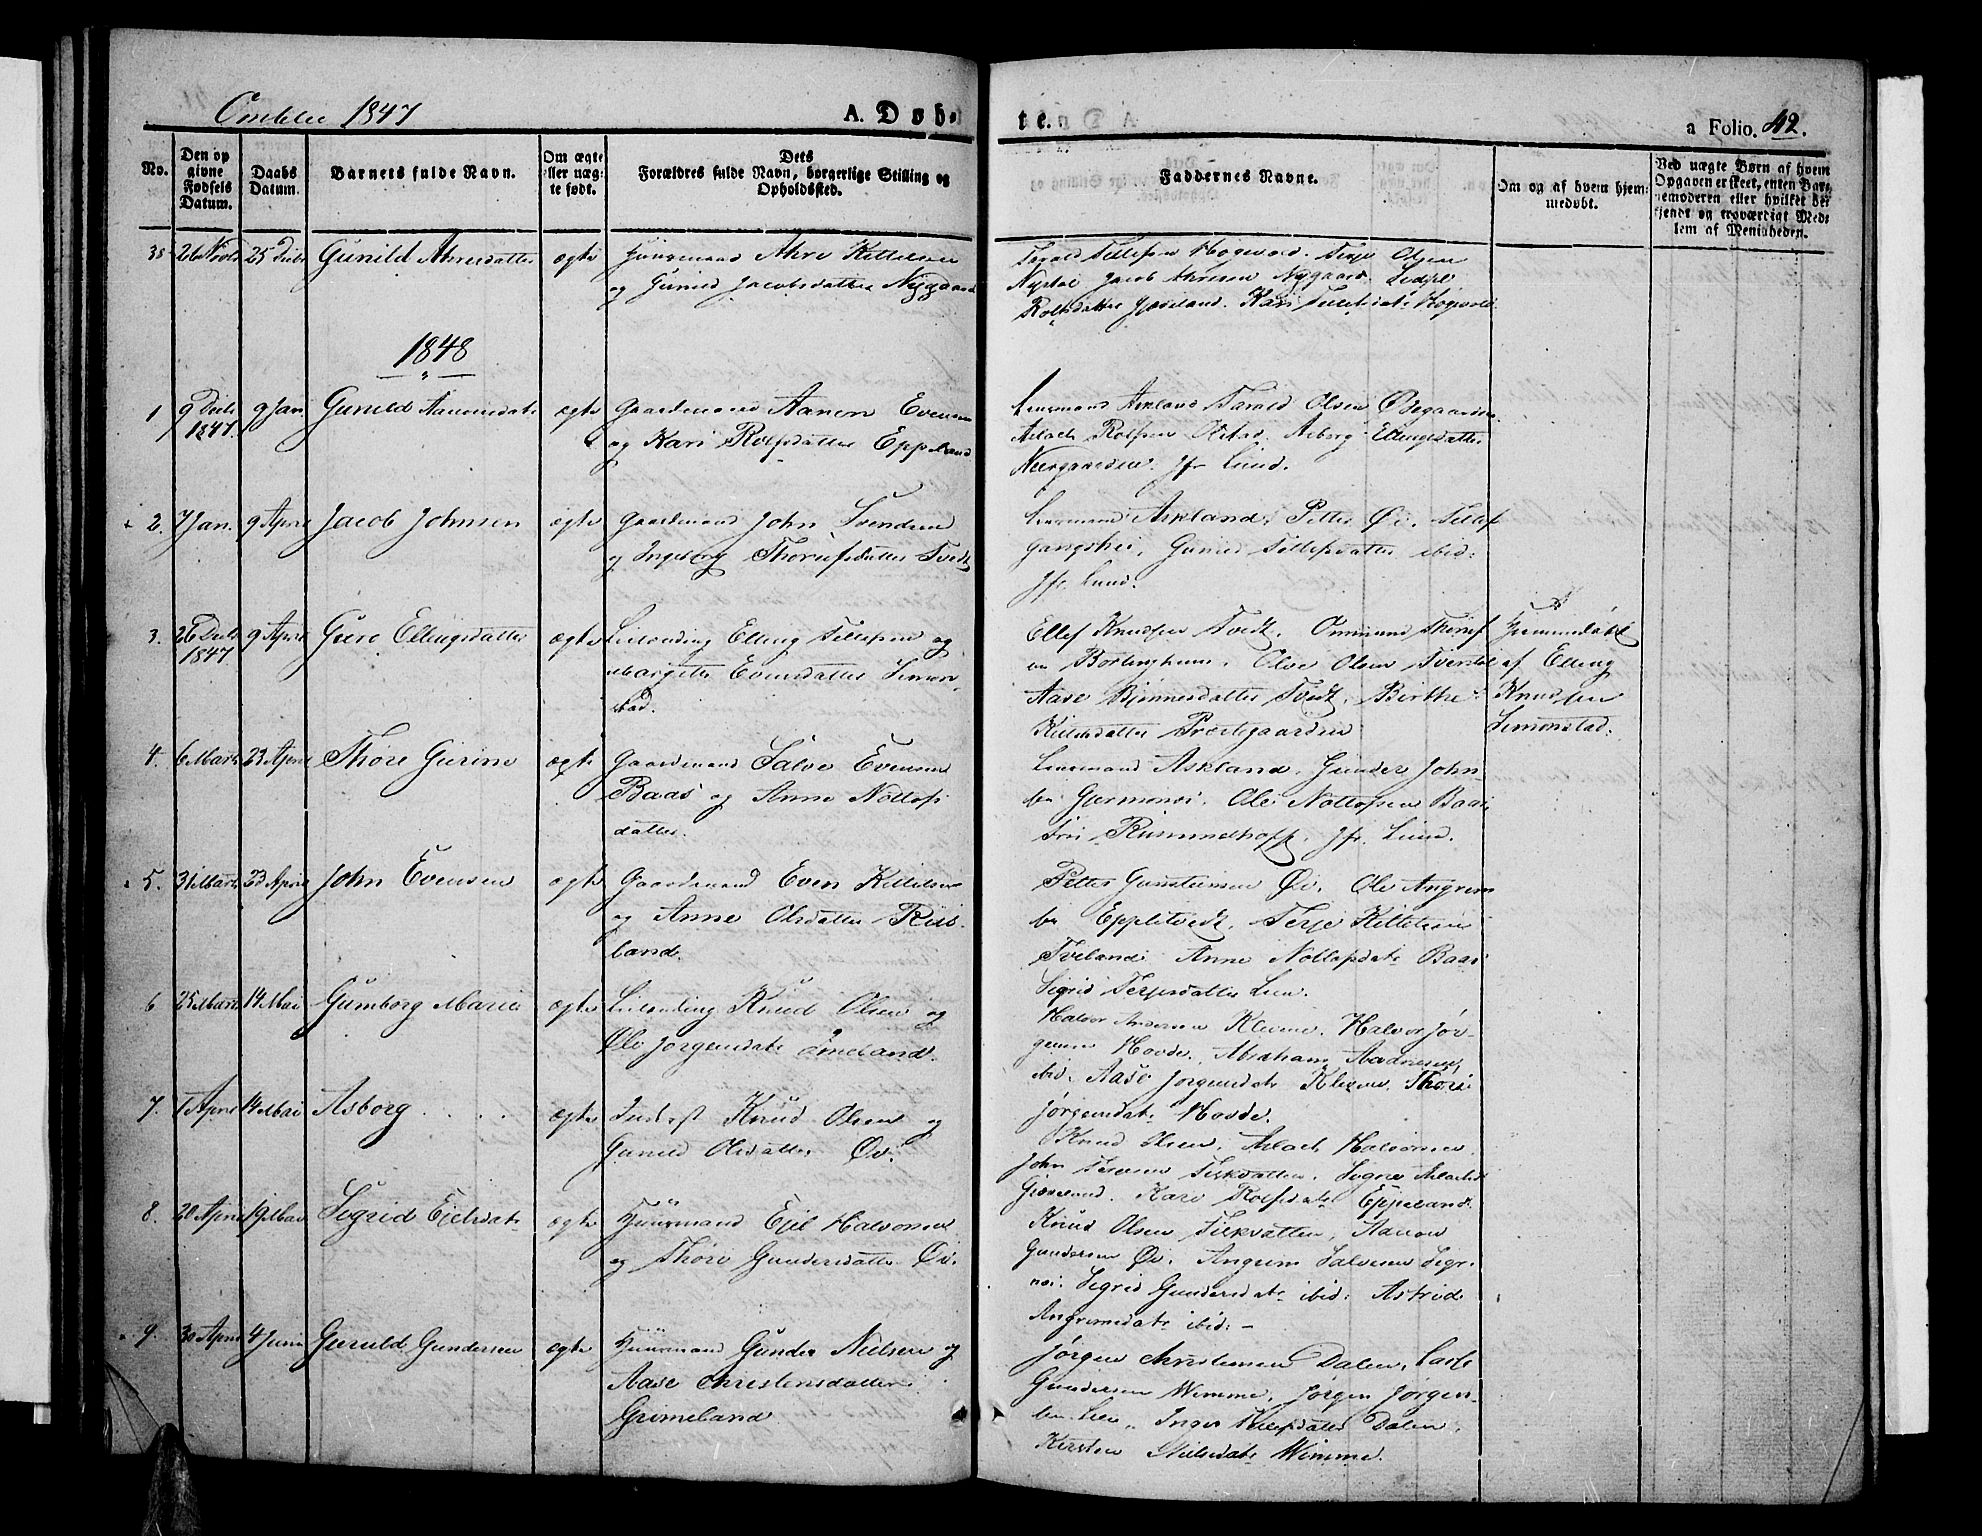 Omblie 1847
A. Døb-
te.
a Folio. 42.
No.
Den op
givne
Fødsels
Datum.
Daabs
Datum.
Barnets fulde Navn.
Om ægte
eller uæg-
te født.
Dets
Forældres fulde Navn, borgerlige Stilling og
Opholdssted.
Faddernes Navne.
Om og af hvem hjem-
medøbt.
Ved uægte Børn af hvem
Opgaven er skeet, enten Bar-
nemoderen eller hvilket be-
kjendt og troværdigt Med-
lem af Menigheden.
35 26 Novb 25 Decbr Gunild Ahresdatter ægte Huusmand Ahre Kittelsen
og Gunild Jacobsdatter Nygaard
Tellefsen Høgevold. Terje Olsen
Jacob Ahresen Nygaard.
Rolfsdatter Kari Tellefsdatr Høgevold
1848
1 9 Decb 9 Jan Gunild Aanonsdatr ægte Gaardmand Aanon Evensen
1847.
og Kari Rolfsdatter Eppeland
Lensmand Askland. Tarald Olsen Ødegaarden
Aslach Rolfsen Olstad. Asborg Ellingsdatter
Neergaarden. Jfr Lund.
2. 7 Jan. 9 April Jacob Johnsen ægte Gaardmand John Svendsen
og Ingeborg Thorersdatter Tvedt
Lensmand Askland. Petter Øi. Tellef
Gangshei, Gunild Tellefsdatter ibid:
Jfr. Lund.
3. 26 Decb 9 April Guro Ellingsdatter ægte Leilænding Elling Tellefsen og
1847
Margitte Evensdatter Simon-
stad.
Ellef Knudsen Tvedt. Ommund
Olve Olsen
Aase Bjønnesdatter Tvedt. Birthe
Præstegaarden
Hjemmedøbt
af Elling
Knudsen
Simonstad.
4. 6 Marts 23 April Thore Gurine ægte Gaardmand Salve Evensen
Baas og Anne Nottolfs
datter.
Lensmand Askland. Gunder John-
sen Ole Nottolfsen Baas
Rummelhoff. Jfr. Lund.
5. 31 Marts 23 April John Evensen ægte Gaardmand Even Kittelsen
og Anne Olsdatter Riis-
land.
Petter Gunsteinsen Øi. Ole Angrim
sen Eppeltvedt. Terje Kittelsen
Tveland. Anne Nottolfsdatr Baas
Sigrid Terjesdatter Lien.
6 25 Marts 14 Mai Gumborg Marie ægte Leilænding Knud Olsen og
Jørgensdatr
Halvor Andersen Klevene. Halvor Jør-
gensen Hovde. Abraham
ibid. Aase Jørgensdatr Klevene. Thore
Jørgensdatr Hovde.
7. 1 April 14 Mai Asborg . . . . ægte Inderst Knud Olsen og
Gunild Olsdatter Øi.
Knud Olsen. Aslach Halvorsen
John Tersen Fiskvatten. Signe
Kari Rolfsdatr Eppeland
8. 20 April 19 Mai Sigrid Ejelsdatr ægte Huusmand Ejel Halvorsen
og Thore Gundersdatter Øi.
Knud Olsen Fiskvatten, Aanon
Gundersen Øi. Angrim Salvesen
Sigrid Gundersdatr ibid: Astrid
Angrimsdatr ibid: -
9. 30 April 4 Juni Gunuld Gundersen ægte Huusmand Gunder Nielsen og
Aase Christensdatter
Grimeland
Jørgen Christensen Dalen. Carl
Gundersen Wimme. Jørgen Jørgen-
sen Lien. Inger Dalen.
Kirsten Nielsdatr Wimme.